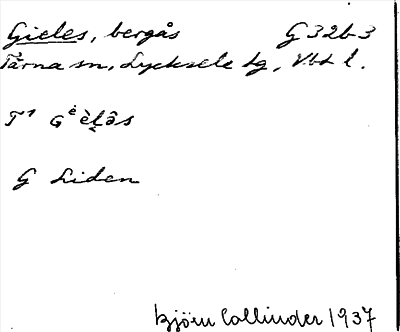 Gieles, bergås G32b3
Tärna sn, Lycksele lg, Vbt l.
G Liden
Björn Collinder 1937